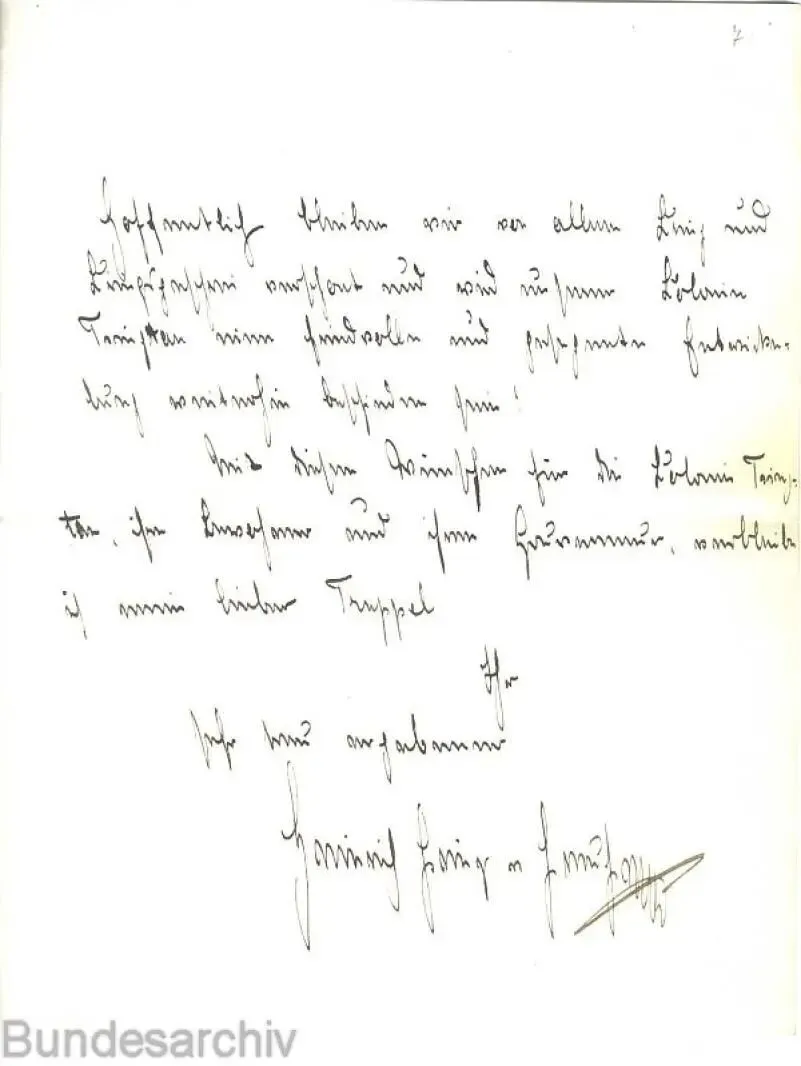 7
Hoffentlich bleiben wir vor allem Krieg und
Kriegsgeschrei verschont und wird unserer Kolonie
Tsingtau eine friedvolle und gesegnete Entwicke-
lung weiterhin beschieden sein!
Mit diesen Wünschen für die Kolonie Tsing-
tau, ihre Bewohner und ihren Gouverneur, verbleibe
ich mein lieber Truppel
Ihr
sehr treu ergebener
Heinrich Prinz v Preußen
Bundesarchiv